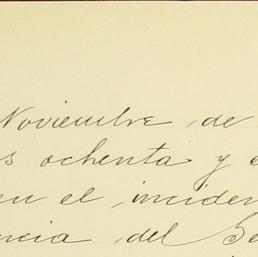 Noviembre de
s ochenta y
en el inciden
ncia del